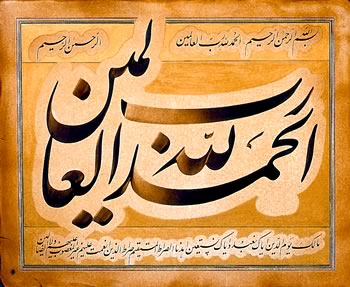 بسم الله الرحمن الرحیم الحمد لله رب العالمین الرحمن الرحیم
الحمد لله رب العالمین
مالک یوم الدین ایاک نعبد و ایاک نستعین اهدنا الصراط المستقیم صراط الذین انعمت علیهم غیر المغضوب علیهم ولاالضالین